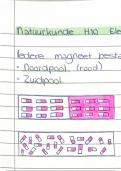 Natuurkunde H10 Ele
Iedere magneet besta
- Noordpool (rood)
- Zuidpool